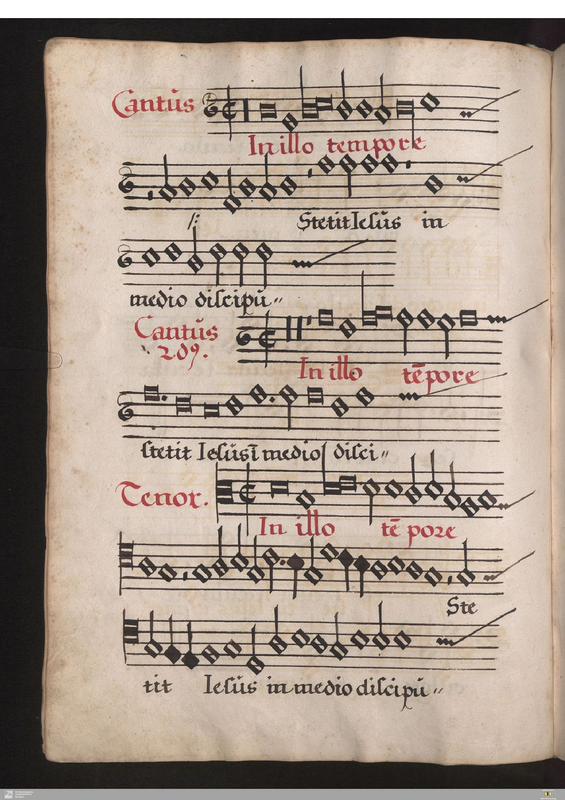 Cantũs
In illo tempore
Stetit Iesũs in
medio discipũ"
Cantũs
2dꝰ.
In illo tẽpore
stetit Iesũs ĩ medio disci"
Tenor.
In illo tẽ pore
Ste
tit Iesũs in medio discipũ"